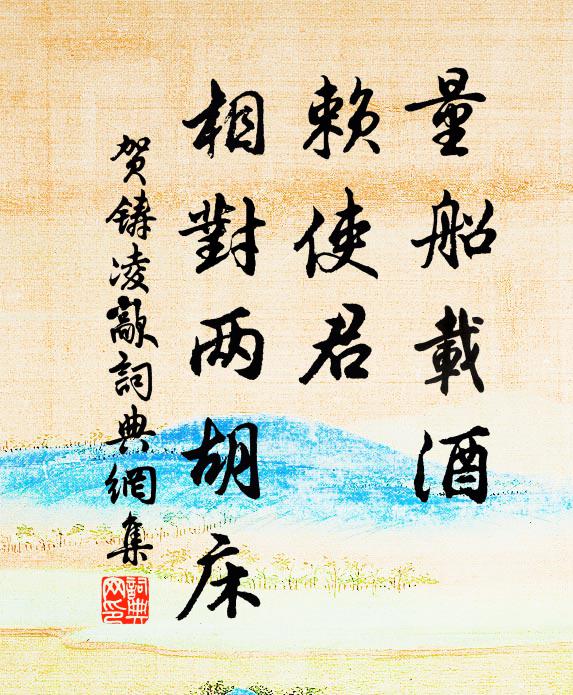 量船載酒
賴使君
相對两胡床
賀鑄凌歊詞典網集
詞典网印